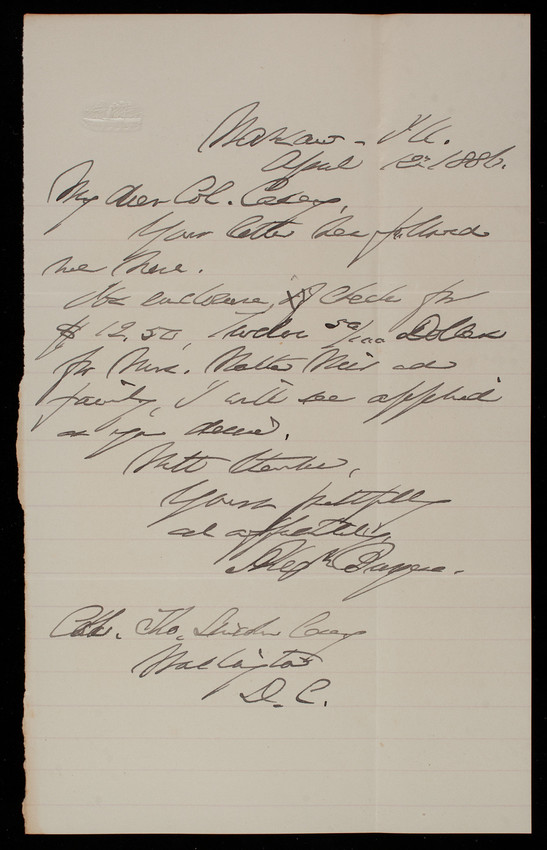 April 12th 1886.
My dear Col. Casey,
Your letter has followed
me here.
The enclosure, of check for
$12.50, Twelve 50/100 Dollars
for Mrs. and
family, I will see applied
as you desire.
With thanks,
Yours faithfully
and affectionately

Col. Tho. Lincoln Casey
Washington
D.C.